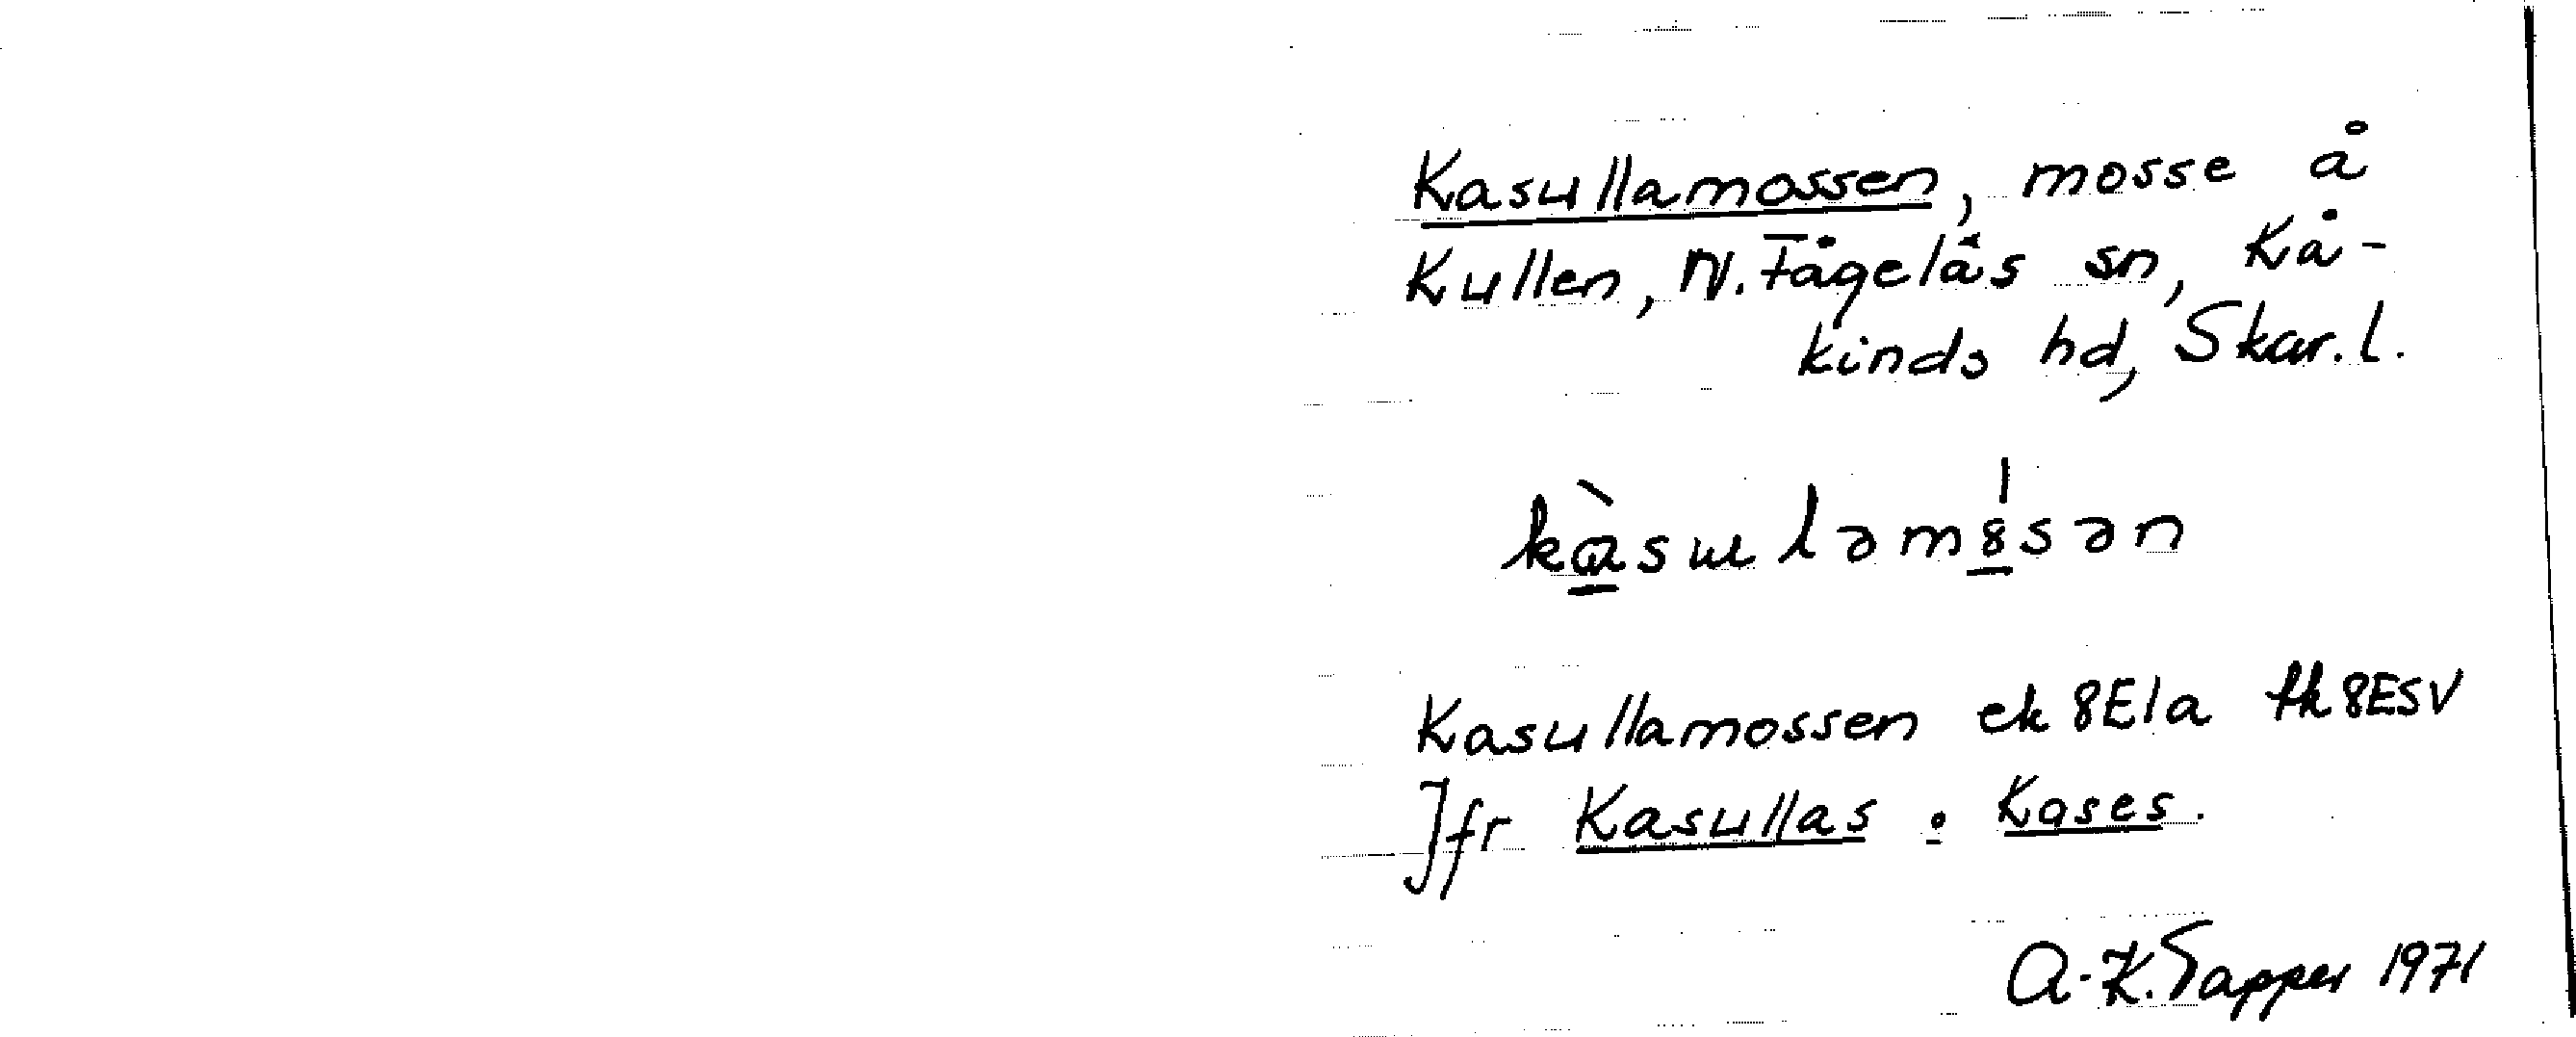 Kasullamossen, mosse å
Kullen, N. Fågelås sn, Kå-
kinds hd, Skar. l.
kɑ̀sɯləm8̍sən
Kasullamossen ek 8E1a fk 8ESV
Jfr Kasullas : Kases.
A-K. Tapper 1971